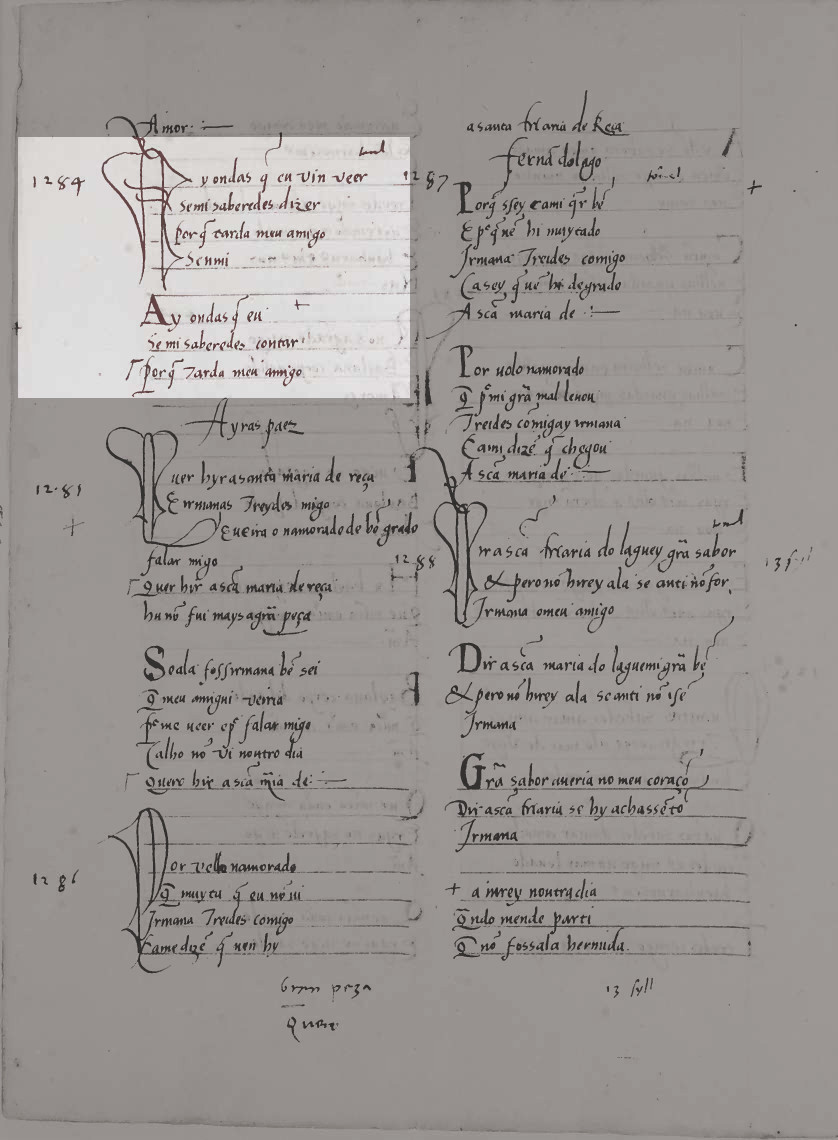 Amor:
1284
Ay ondas q̃ eu vin veer
Semi saberedes dizer
porq̃ tarda meu amigo
Senmi
Ay ondas q̃ eu
Se mi saberedes contar
porq̃ tarda meu amigo
Ayras paez
1285
Quer hyr a santa maria de reça
E irmanas Treydes migo
E ueira o namorado de bõ grado
falar migo
Quer hir a scã maria de reça
hu nõ fui mays a grã peça
Se ala foss irmana bẽ sei
q̃ meu amigui verria
p̃ me veer e p̃ falar migo
Calho nõ vi noutro dia
Quero hir a scã m̃ia de:
1286
Por vello namorado
q̃ muyta q̃ eu nõ ui
Irmana Treides comigo
Came dizẽ q̃ uen hy
Gran peza
Quer
a santa Maria de Reça
fernã dolago
1287
tornel
Porq̃ ssey cami q̃r bẽ
E p̃q̃ uẽ hi muy cado
Irmana Treides comigo
Ca sey q̃ uẽ hi de grado
A scã maria de
Por uelo namorado
Q̃ p̃ mi grã mal leuou
Treides comigay irmana
Cami dizẽ q̃ chegou
A scã maria de
1288
D ir a scã Maria do laguey grã sabor
& pero nõ hirey ala se anti nõ for
Irmana o meu amigo
D ir a scã maria do laguemi grã bẽ
& pero nõ hirey ala se anti nõ uẽ
Irmana
Grã sabor aueria no meu coraçõ
D ir a scã Maria se hy achassẽ tõ
Irmana
+ a iurey noutra dia
q̃ndo mende parti
Q̃ nõ fossala hermida
13 syll